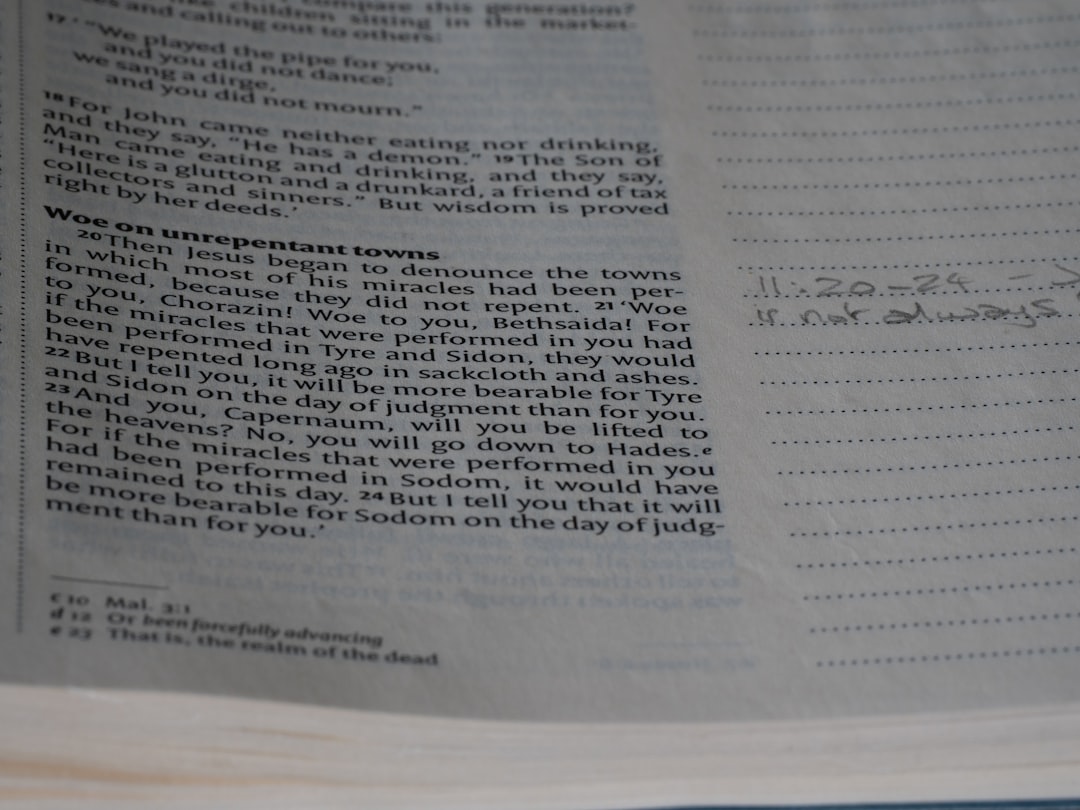 compare this generation?
like children sitting in the market-
and calling out to others:
17 ‘ “We played the pipe for you,
and you did not dance;
we sang a dirge,
and you did not mourn.”
18 For John came neither eating nor drinking,
and they say, “He has a demon.” 19 The Son of
Man came eating and drinking, and they say,
“Here is a glutton and a drunkard, a friend of tax
collectors and sinners.” But wisdom is proved
right by her deeds.’
Woe on unrepentant towns
20 Then Jesus began to denounce the towns
in which most of his miracles had been per-
formed, because they did not repent. 21 ‘Woe
to you, Chorazin! Woe to you, Bethsaida! For
if the miracles that were performed in you had
been performed in Tyre and Sidon, they would
have repented long ago in sackcloth and ashes.
22 But I tell you, it will be more bearable for Tyre
and Sidon on the day of judgment than for you.
23 And you, Capernaum, will you be lifted to
the heavens? No, you will go down to Hades.e
For if the miracles that were performed in you
had been performed in Sodom, it would have
remained to this day. 24 But I tell you that it will
be more bearable for Sodom on the day of judg-
ment than for you.’
c 10 Mal. 3:1
d 12 Or been forcefully advancing
e 23 That is, the realm of the dead
11:20-24 ->
is not always